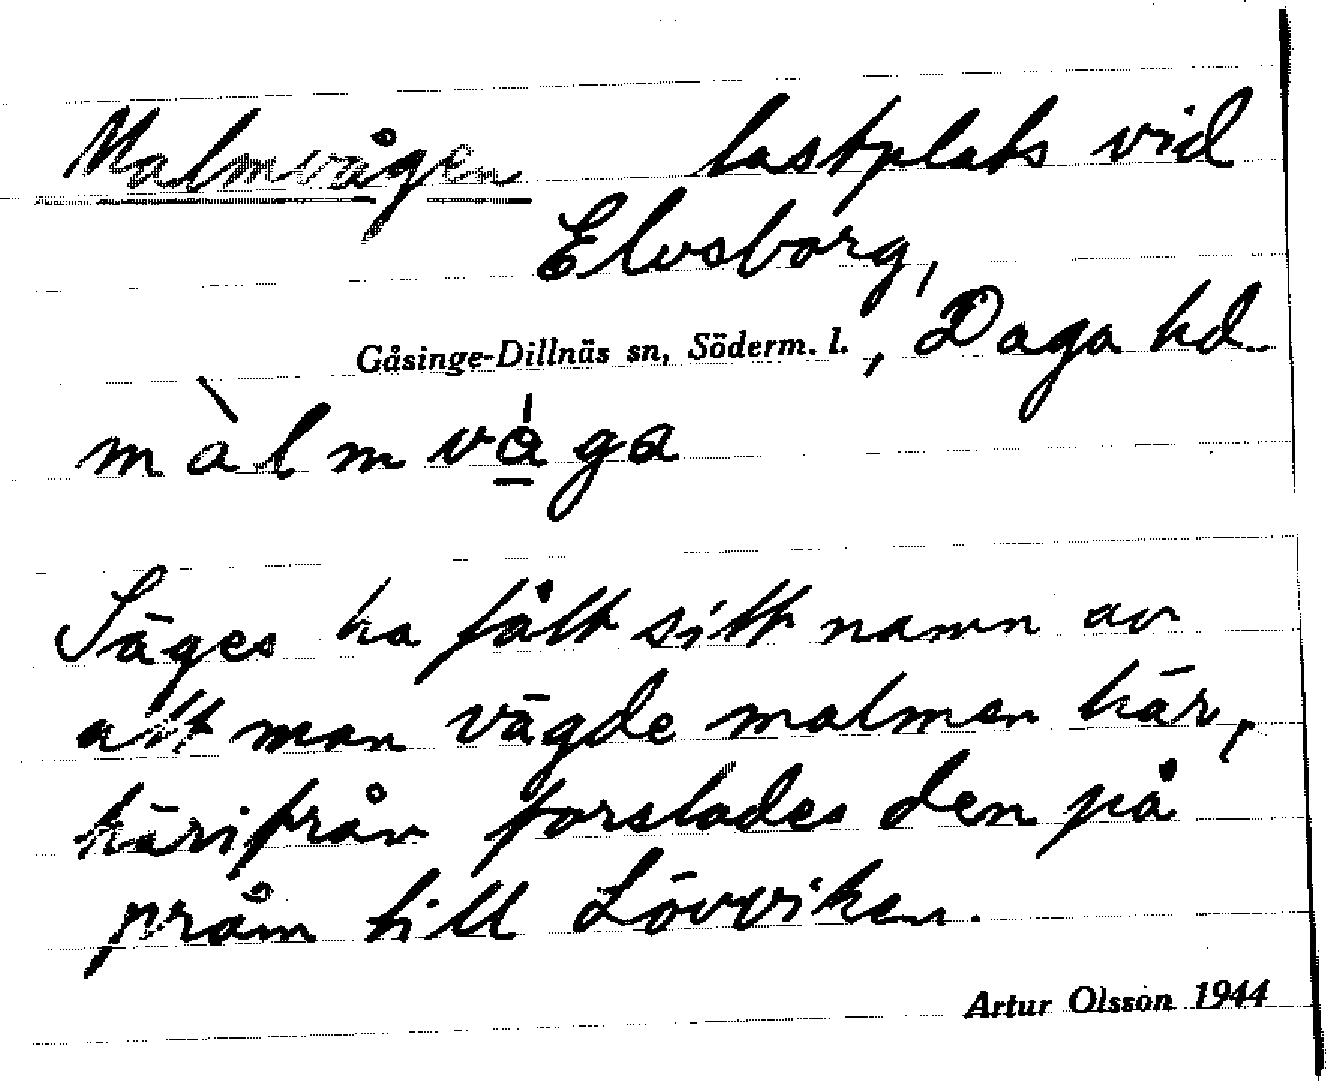 Malmvågen lastplats vid
Elvsborg,
Gåsinge-Dillnäs sn, Söderm. l., Daga hd.
màlmvá̱ga
Säges ha fått sitt namn av
att man vägde malmen här,
härifrån forslades den på
pråm till Lövviken.
Artur Olsson 1944